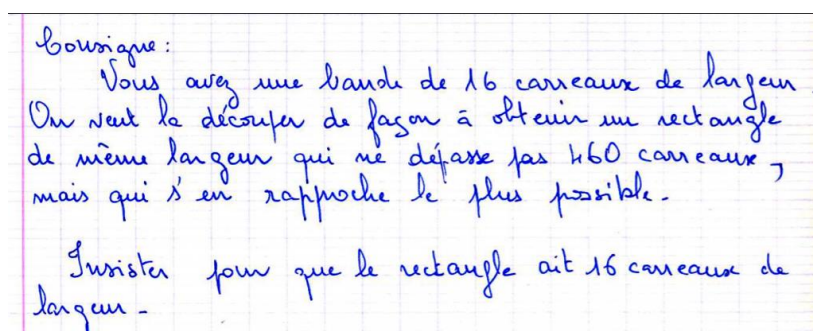 Consigne :
Vous avez une bande de 16 carreaux de largeur.
On veut la découper de façon à obtenir un rectangle
de même largeur qui ne dépasse pas 460 carreaux,
mais qui s'en rapproche le plus possible.
Insister pour que le rectangle ait 16 carreaux de
largeur.